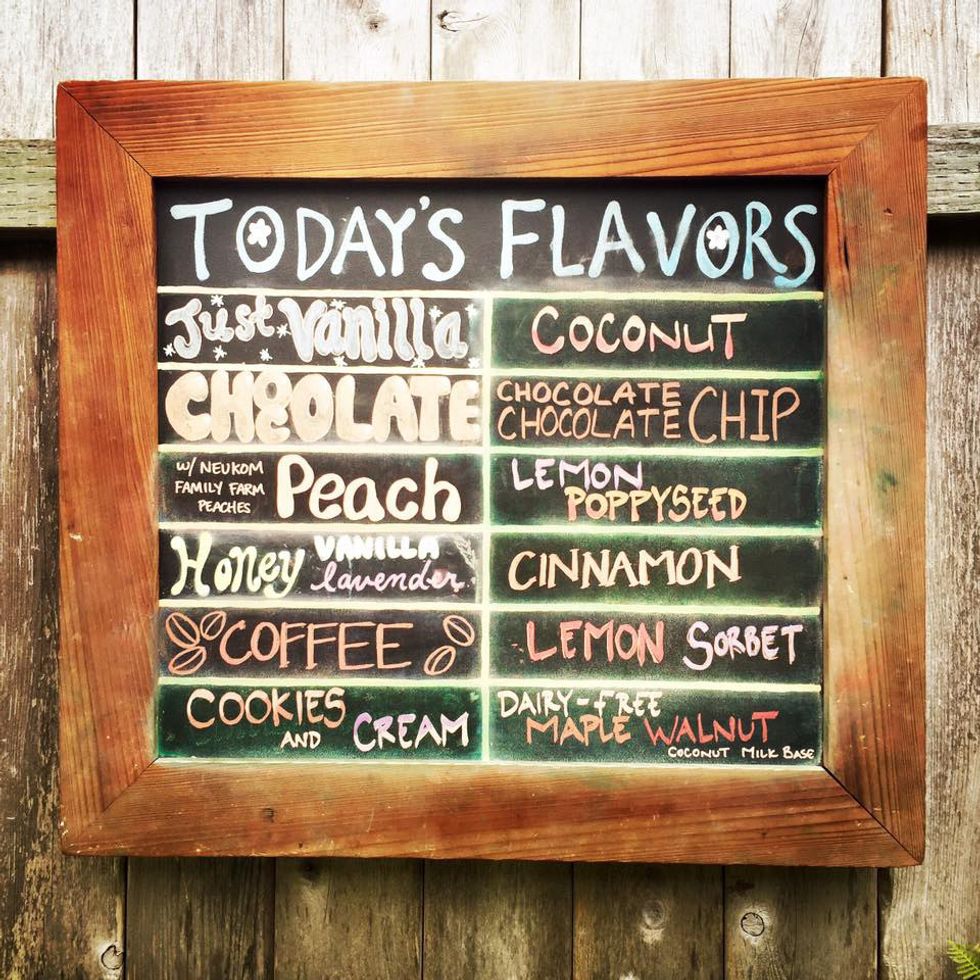 TODAY'S FLAVORS
Just Vanilla
CHOCOLATE
w/ NEUKOM
FAMILY FARM
PEACHES
Peach
Honey
VANILLA
lavender
COFFEE
COOKIES
AND
CREAM
COCONUT
CHOCOLATE
CHOCOLATE CHIP
LEMON
POPPYSEED
CINNAMON
LEMON SORBET
DAIRY-FREE
MAPLE WALNUT
COCONUT MILK BASE